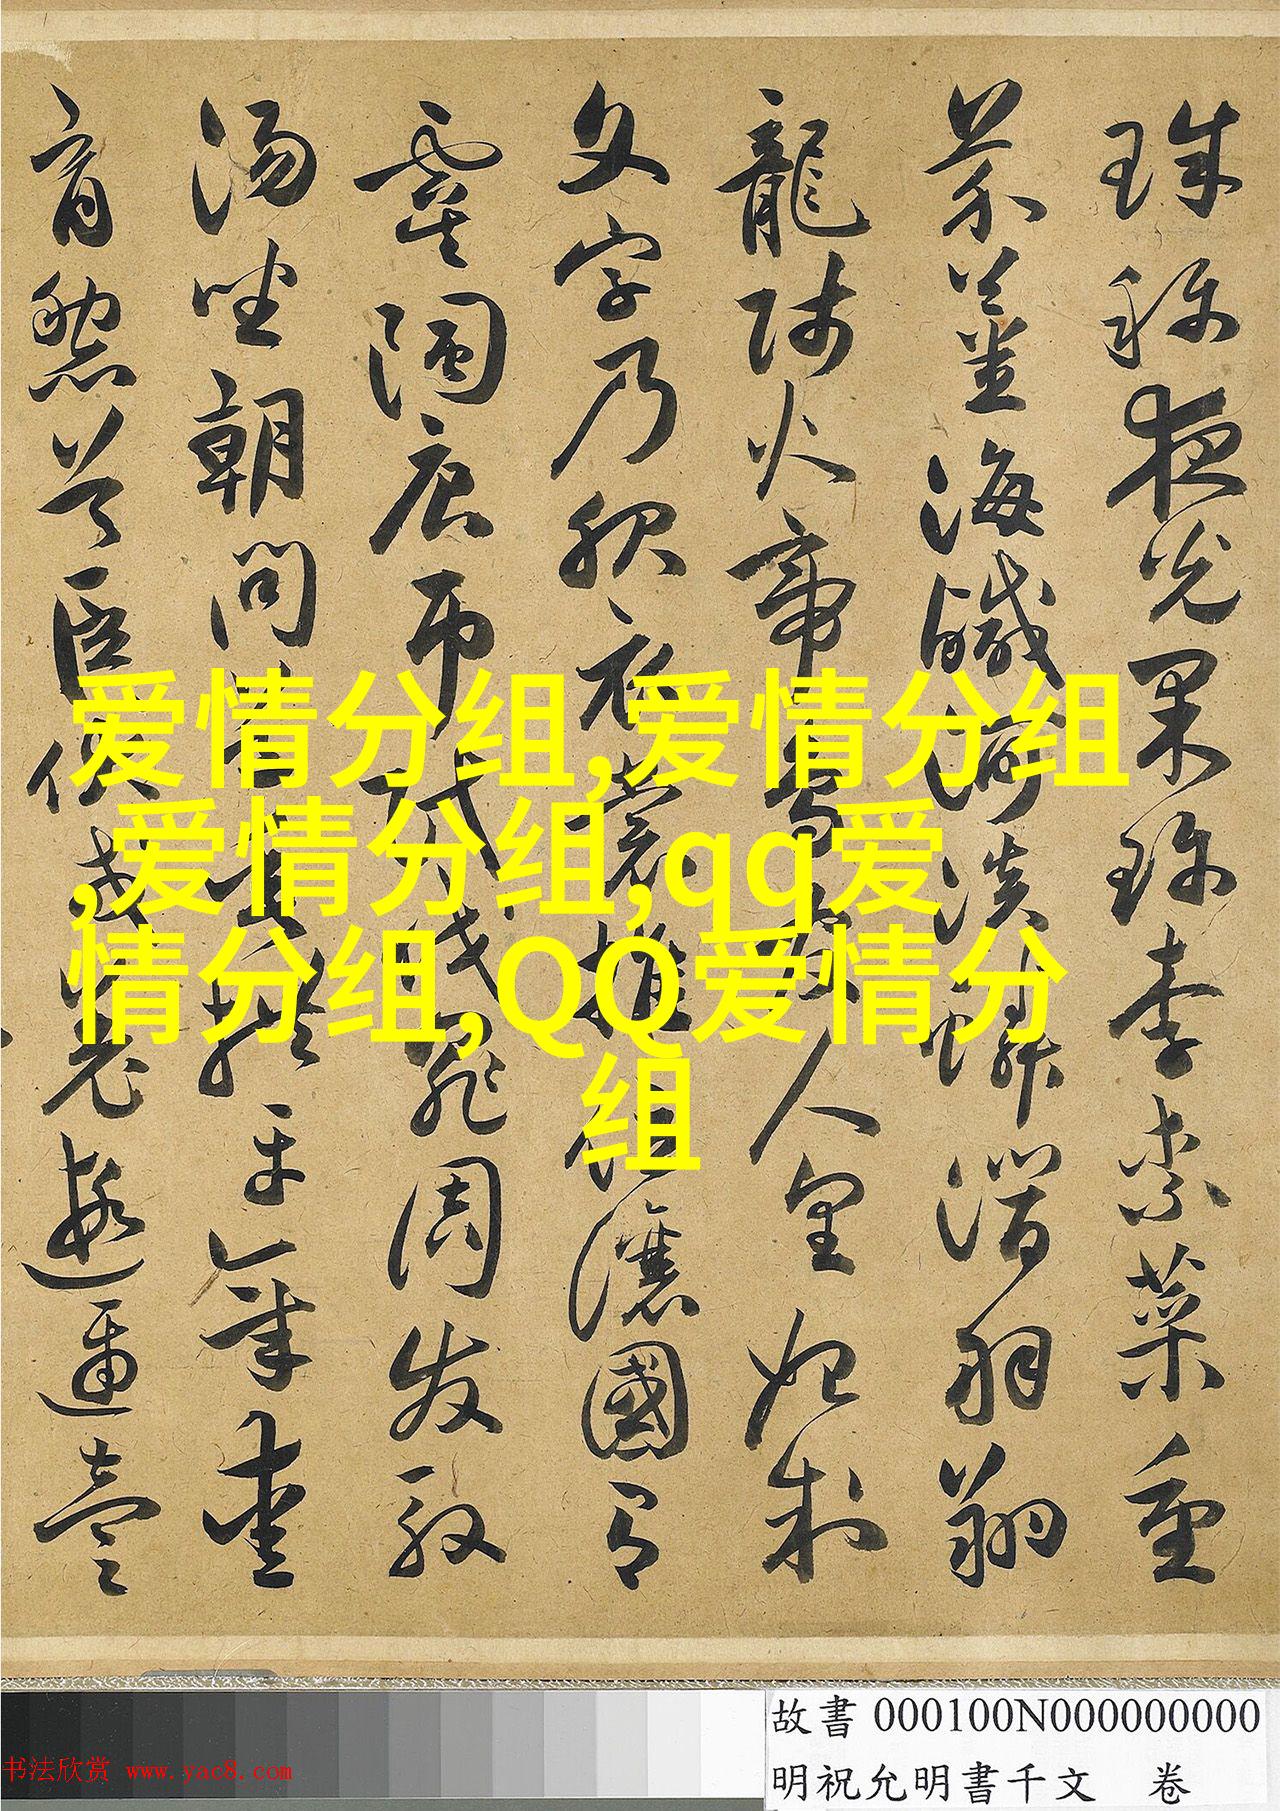 珠称夜光果珍李柰菜重
芥薑海鹹河淡鱗潛羽翔
龍師火帝鳥官人皇始制
文字乃服衣裳推位讓國有
虞陶唐弔民伐罪周发殷
湯坐朝問道垂拱平章愛
育黎首臣伏戎羌遐邇壹
爱情分组,爱情分组
,爱情分组,qq爱
情分组,QQ爱情分
组
故書 000100N000000000
明祝允明書千文 卷
书法欣赏 www.yac8.com